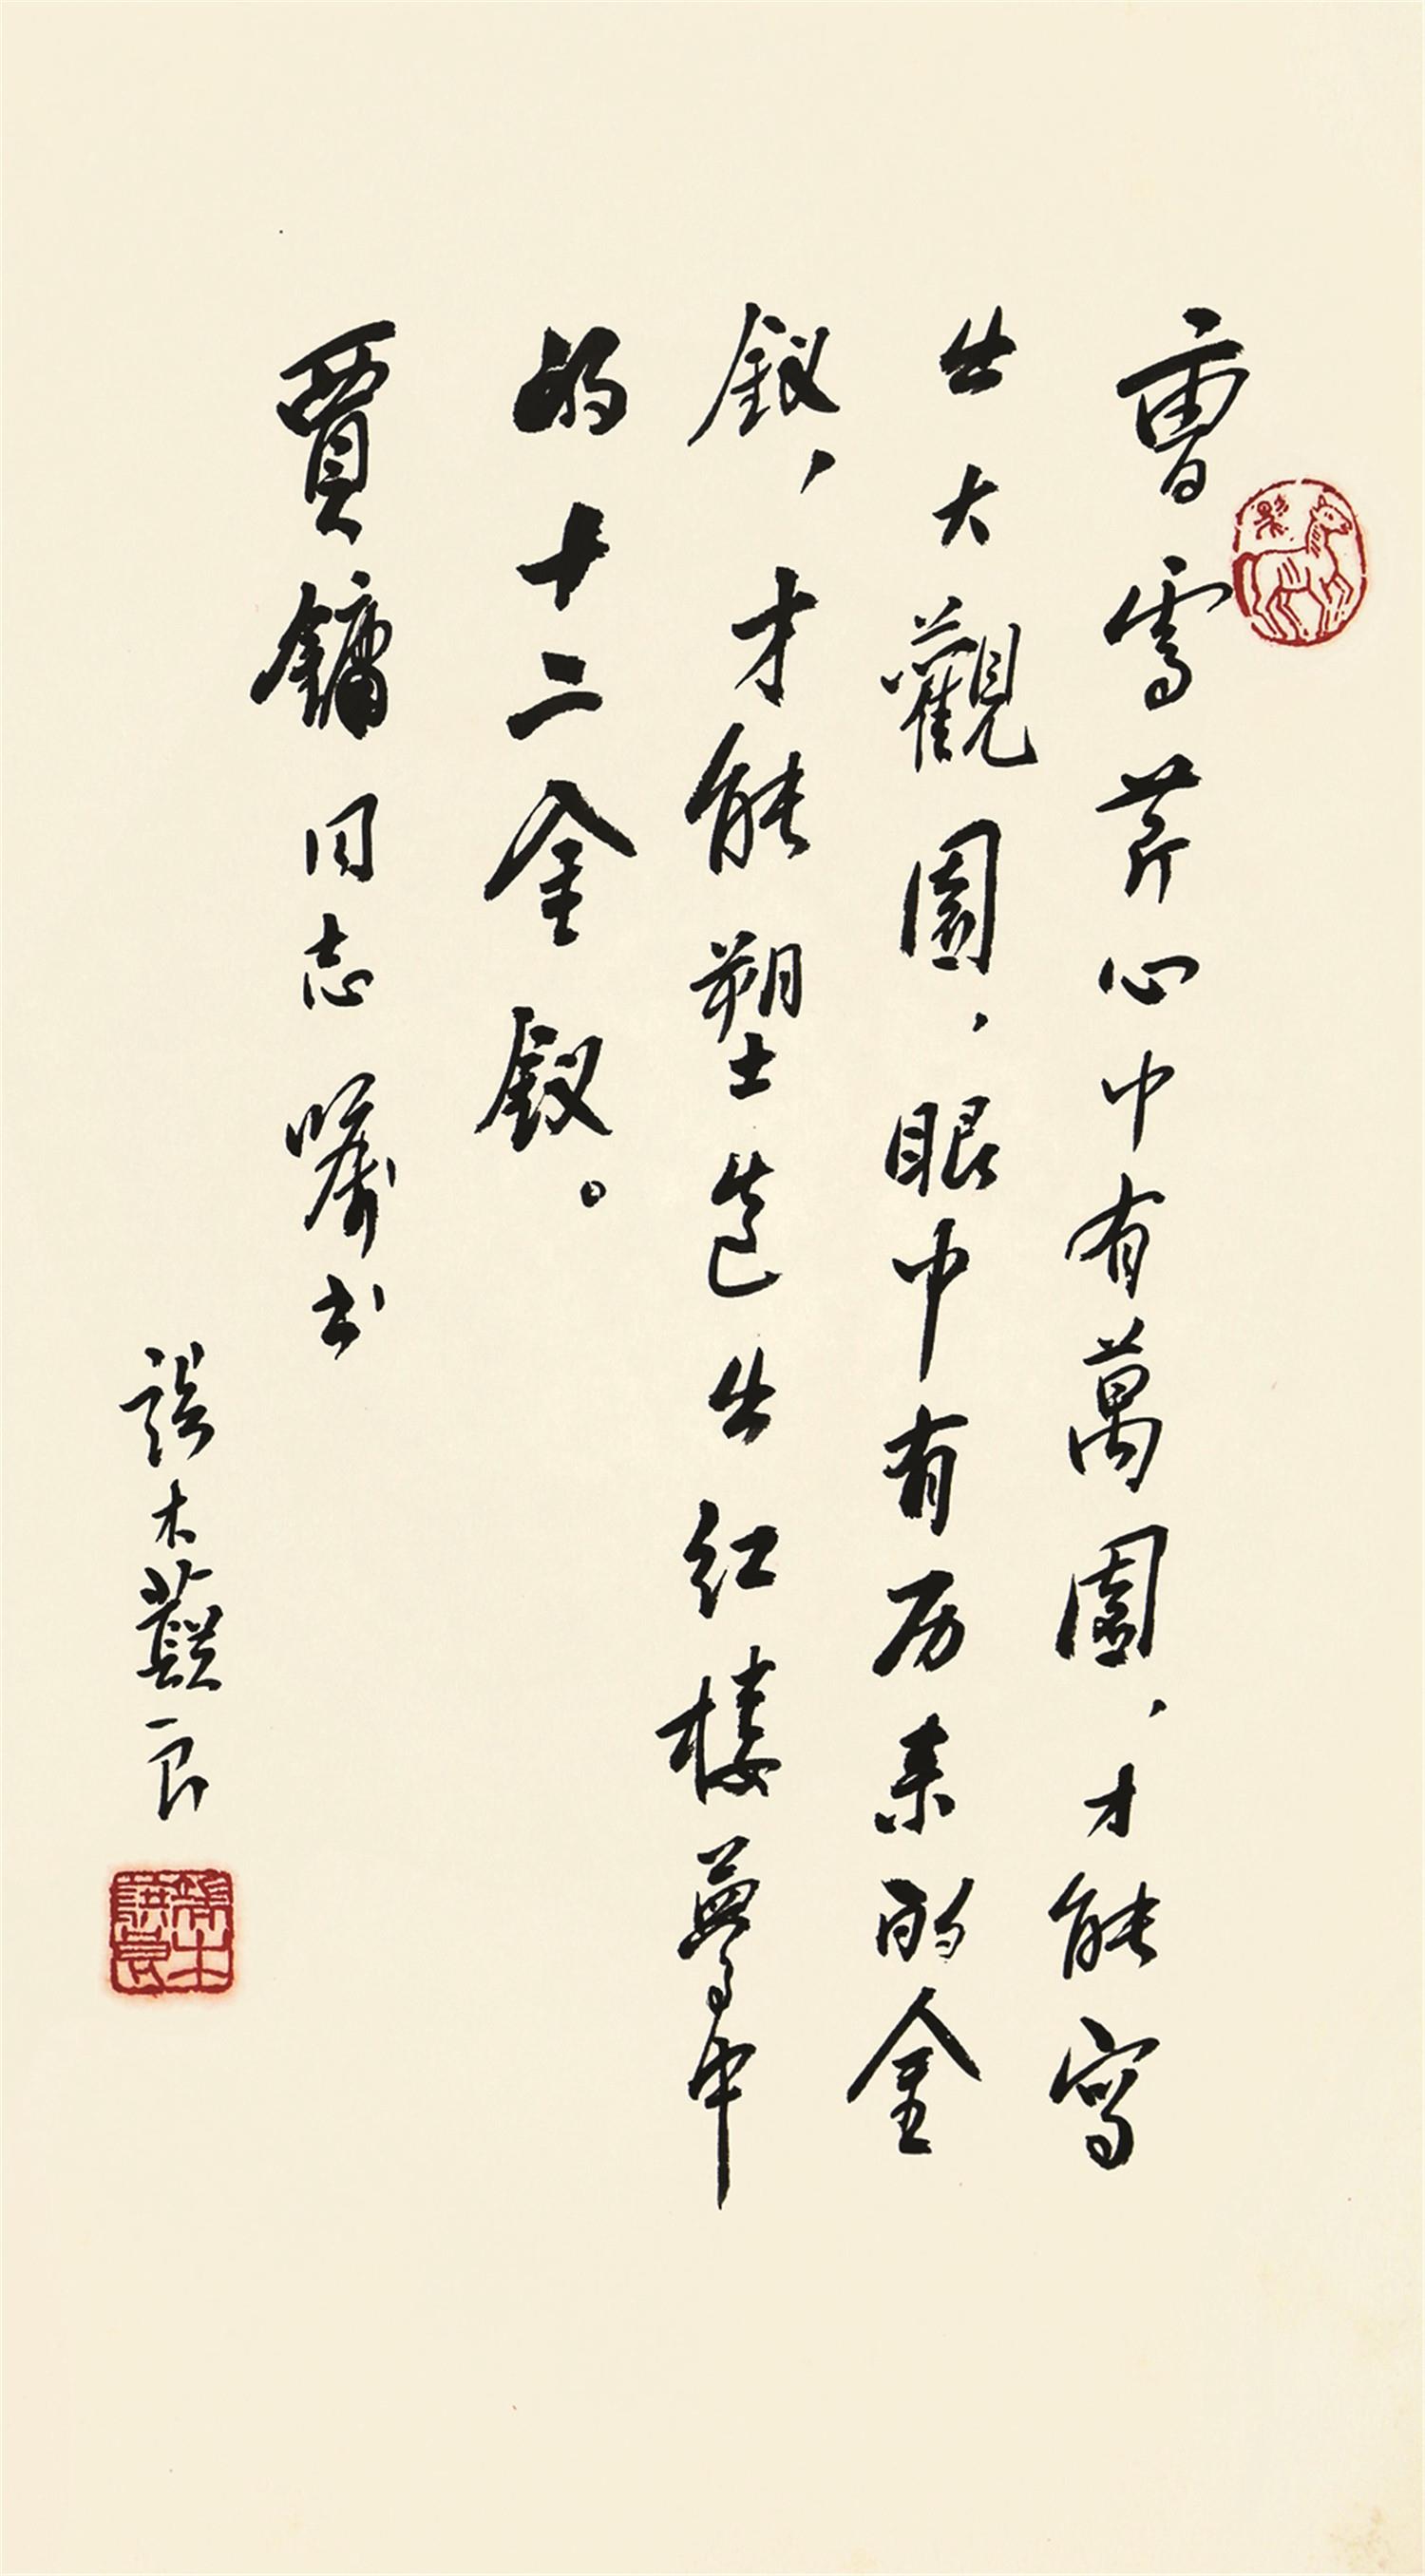 曹雪芹心中有萬園，才能寫
出大觀園，眼中有历来的金
釵，才能塑造出红楼夢中
的十二金釵。
賈鏞同志嘱书
端木蕻良
端木蕻良